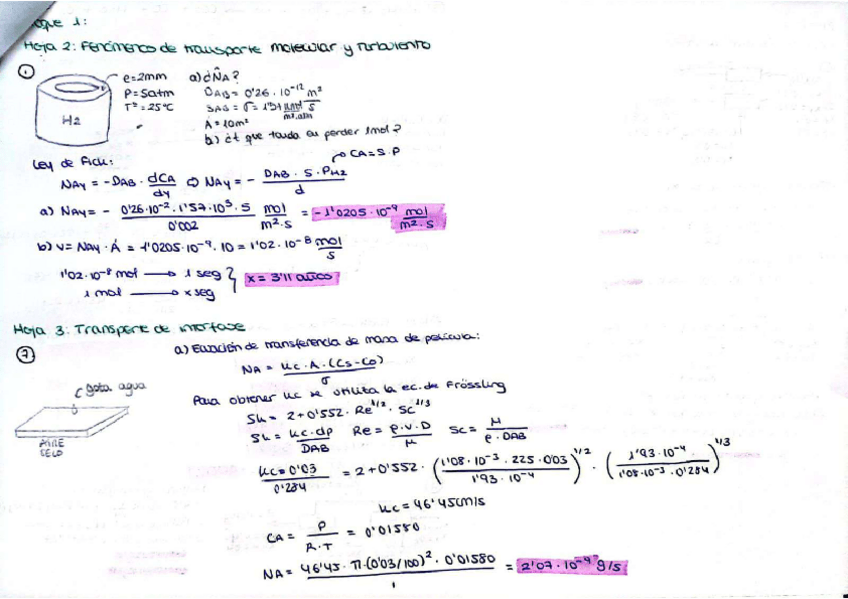 que 1:
Hoja 2: Fenómenos de transporte molecular y turbulento
1
e=2mm
P=5atm
Tª=25ºC
H2
a) ¿N̂A?
DAB = 0'26·10⁻¹² m²/s
SAB = σ = 1'57 mol/m³·atm
Á = 10m²
b) ¿t que tarda en perder 1mol?
Ley de Fick:
CA=S·P
NAy = -DAB · dCA/dy ⇨ NAy = - DAB · S · PH2 / d
a) NAy = - 0'26·10⁻² · 1'57·10³ · 5 / 0'002 mol/m²·s = -1'0205·10⁻⁹ mol/m²·s
b) v = NAy · Á = 1'0205·10⁻⁹ · 10 = 1'02·10⁻⁸ mol/s
1'02·10⁻⁸ mol → 1 seg
1 mol → x seg
x = 3'11 años
Hoja 3: Transporte de interfase
7
gota agua
AIRE
SECO
a) Ecuación de transferencia de masa de película:
NA = kc·A·(Cs-Co) / σ
Para obtener kc se utiliza la ec. de Frössling
Sh = 2+0'552 · Re^1/2 · Sc^1/3
Sh = kc·dp/DAB Re = ρ·v·D/μ Sc = μ/ρ·DAB
kc·0'03/0'284 = 2+0'552 · (1'08·10⁻³ · 225 · 0'03 / 1'93·10⁻⁴)^1/2 · (1'93·10⁻⁴ / 1'08·10⁻³ · 0'284)^1/3
kc = 46'45cm/s
CA = P/R·T = 0'01580
NA = 46'45 · π·(0'03/100)² · 0'01580 / 1 = 2'07·10⁻⁹ g/s